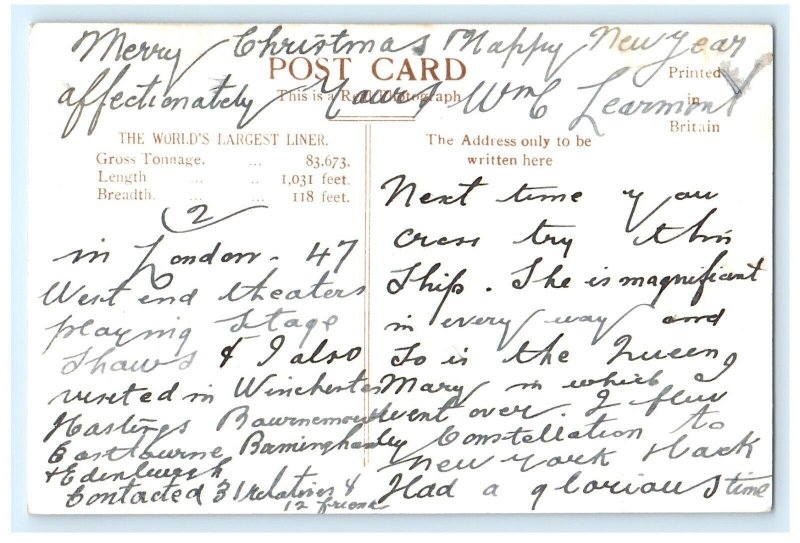 Merry Christmas Happy New Year
POST CARD
affectionately Yours Wm C Learmont
This is a Real Photograph
Printed
in
Britain
THE WORLD'S LARGEST LINER.
Gross Tonnage. ... 83,673.
Length ... .. 1,031 feet.
Breadth. ... ... 118 feet.
2
in London - 47
West end theaters
playing Stage
Shows & I also
visited in Winchester
Hastings Bournemouth
Eastbourne Birmingham
& Edenburgh
Contacted 31 relatives &
12 friends
The Address only to be
written here
Next time you
cross try this
Ship. She is magnificent
in every way and
So is the Queen
Mary in which I
went over. I flew
by Constellation to
New York & back
Had a glorious time